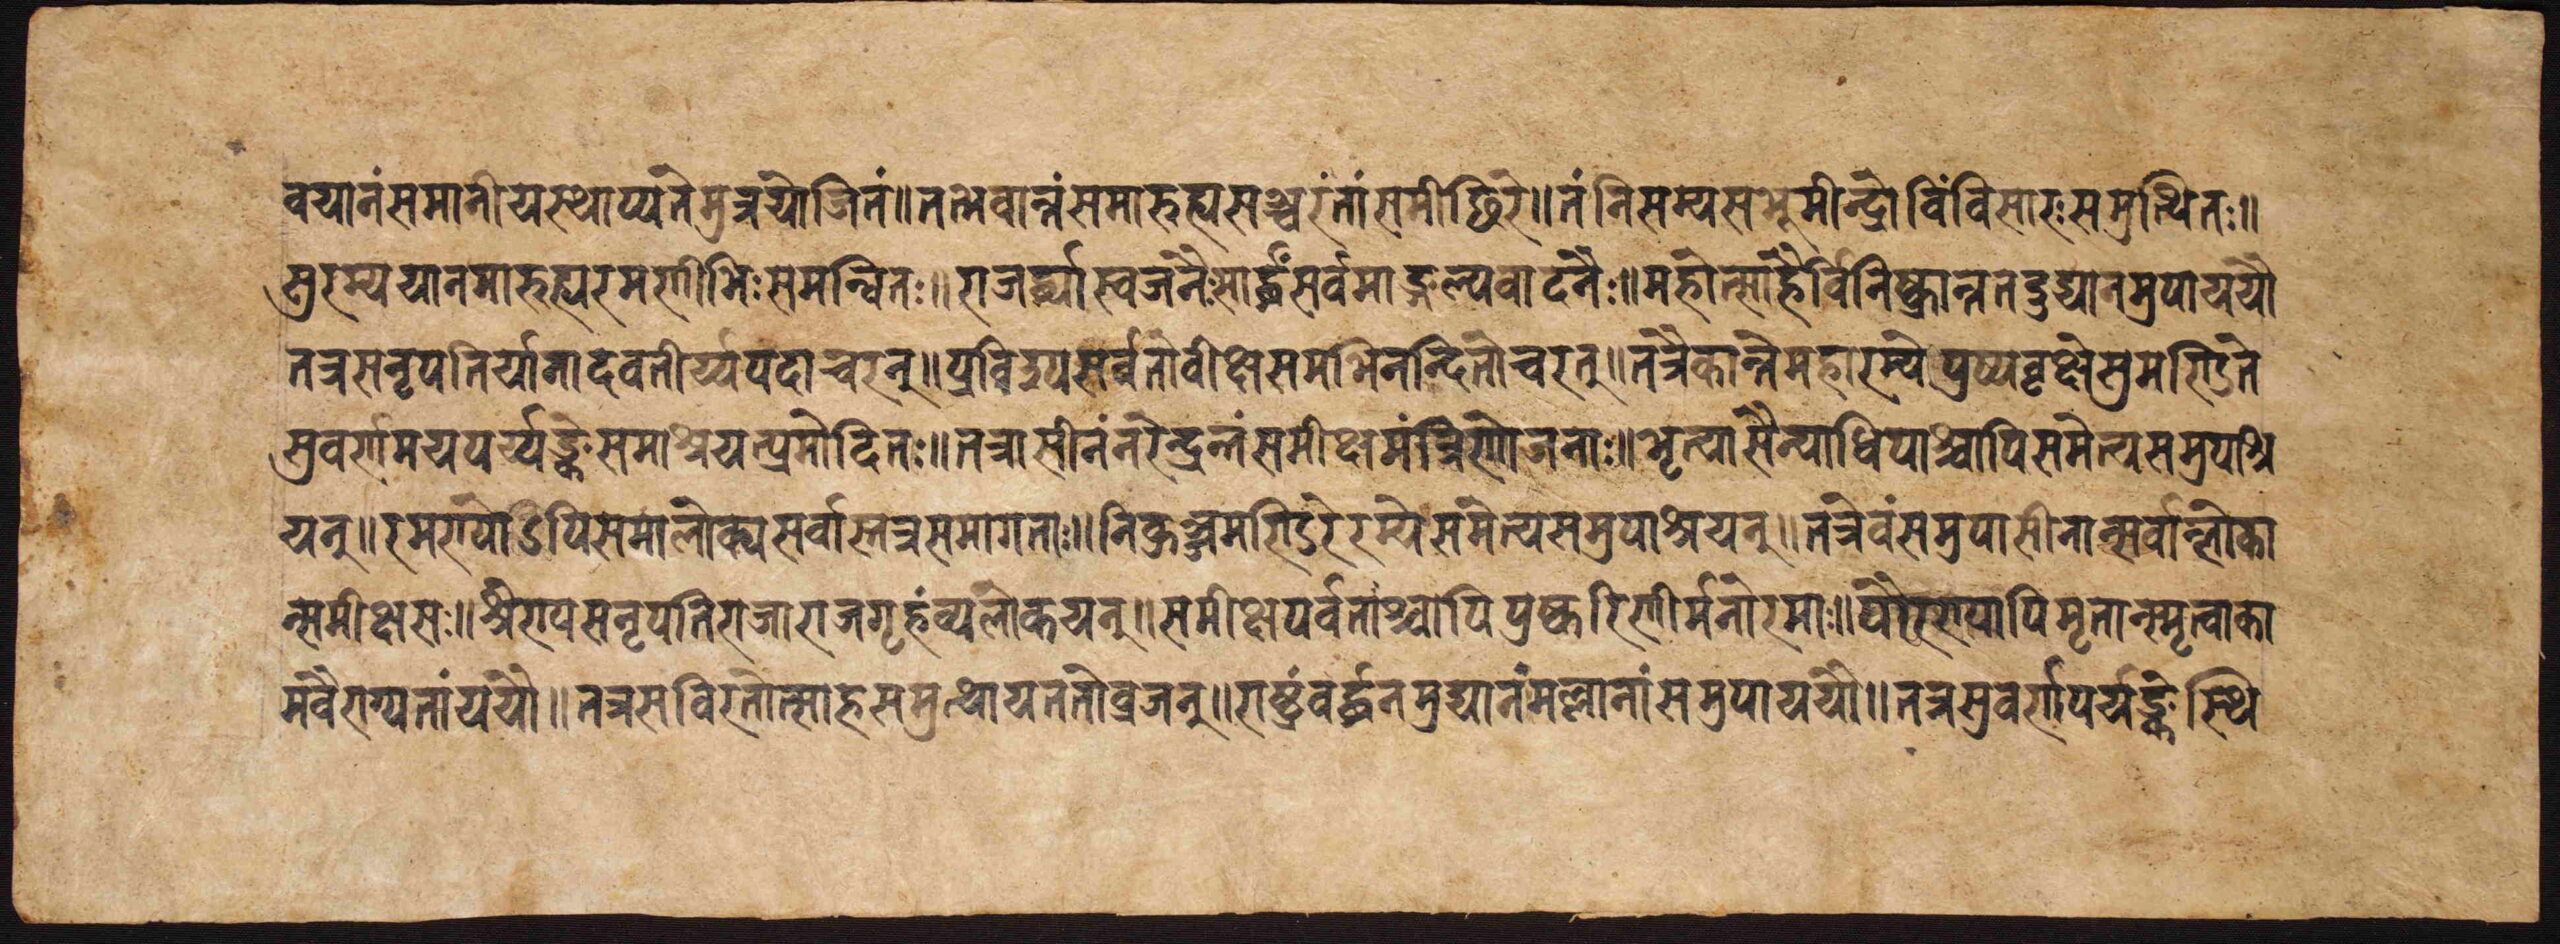 वयानंसमानीयस्थाप्यतेमुत्रयोजितं॥तत्भवान्तंसमारुह्यसञ्चरंतांसमीछिरे॥तंनिसम्यसभूमीन्द्रोविंविसारःसमुत्थितः॥
सुरम्ययानमारुह्यरमणीभिःसमन्वितः॥राजर्द्ध्यास्वजनैःसार्द्धंसर्वमाङ्गल्यवादनैः॥महोत्साहैर्विनिष्क्रान्ततदुद्यानमुपाययौ
तत्रसनृपतिर्यानादवतीर्य्यपदाचरन्॥प्रविश्यसर्वतोवीक्ष्यसमभिनन्दितोचरत्॥तत्रैकान्तेमहारम्येपुष्पवृक्षेसुमण्डिते
सुवर्णमयपर्य्यङ्केसमाश्रयत्प्रमोदितः॥तत्रासीनंनरेन्द्रन्तंसमीक्ष्यमंत्रिणोजनाः॥भृत्यासैन्याधिपाश्चापिसमेत्यसमुपाश्रि
यन्॥रमण्योऽपिसमालोक्यसर्वास्तत्रसमागताः॥निकुञ्जमण्डिरेरम्येसमेत्यसमुपाश्रयन्॥तत्रैवंसमुपासीनान्सर्वान्लोका
न्समीक्ष्यसः॥श्रेण्यसनृपतिराजाराजगृहंव्यलोकयन्॥समीक्ष्यपर्वतांश्चापिपुष्करिणीर्मनोरमाः॥पौरण्यापिमृतान्स्मृत्वाका
मवैराग्यतांययौ॥तत्रसविरतोत्साहसमुत्थायततोव्रजन्॥राष्ट्रंवर्द्धनमुद्यानंमल्लानांसमुपाययौ॥तत्रसुवर्णपर्यङ्केस्थि